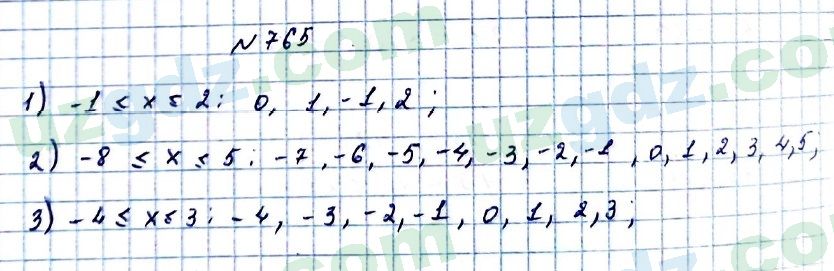 № 765
1) -1 ≤ x ≤ 2: 0, 1, -1, 2;
2) -8 ≤ x ≤ 5: -7, -6, -5, -4, -3, -2, -1, 0, 1, 2, 3, 4, 5;
3) -4 ≤ x ≤ 3: -4, -3, -2, -1, 0, 1, 2, 3;
uzgdz.com